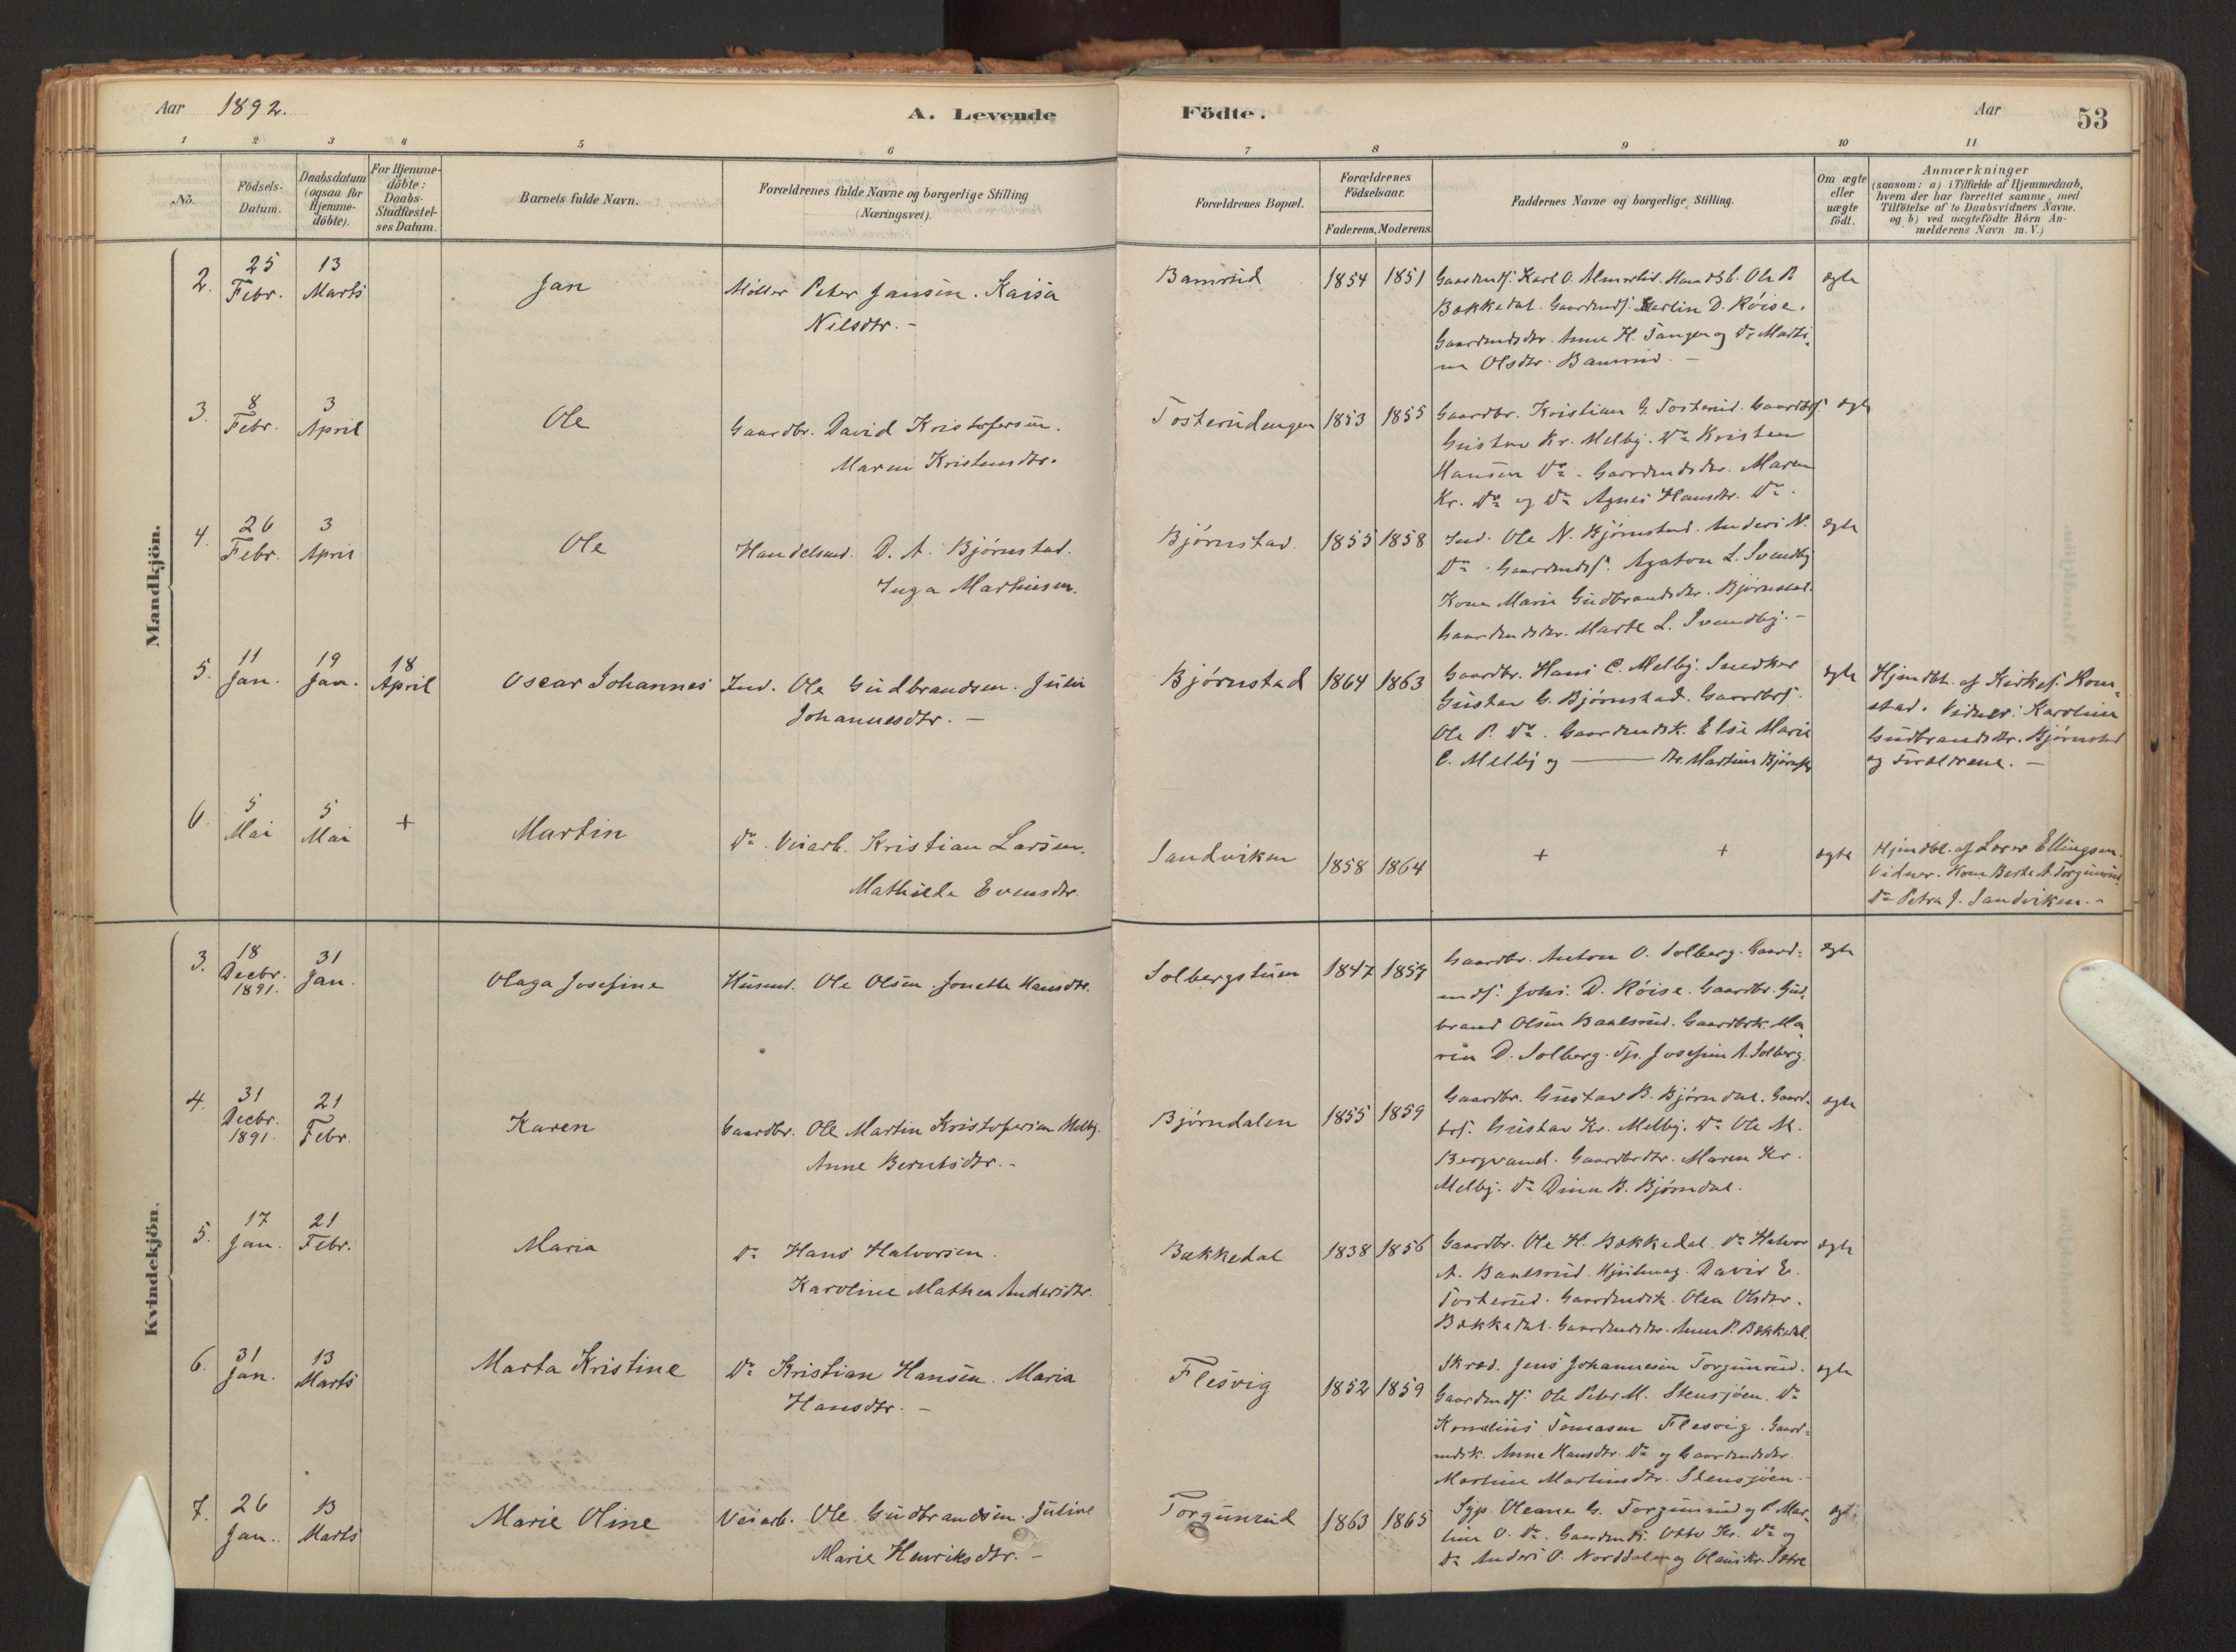 Aar 1892.
A. Levende
Födte.
Aar
53
1 2 3 4 5 6 7 8 9 10 11
No.
Födsels-
Datum.
Daabsdatum
(ogsaa for
Hjemme-
döbte).
For Hjemme-
döbte:
Daabs-
Stadfæstel-
ses Datum.
Barnets fulde Navn.
Forældrenes fulde Navne og borgerlige Stilling
(Næringsvei).
Forældrenes Bopæl.
Forældrenes
Födselsaar.
Faderens. Moderens.
Faddernes Navne og borgerlige Stilling.
Om ægte
eller
uægte
födt.
Anmærkninger
(saasom: a) i Tilfælde af Hjemmedaab,
hvem der har forrettet samme, med
Tilföielse af to Daabsvidners Navne.
og b) ved uægtefödte Börn An-
melderens Navn m. V.)
Mandkjön.
2.
25
Febr.
13
Marts
Jan
Møller Peter Jansen. Kaisa
Nilsdtr. -
Bamrud
1854 1851
Gaardmdsf. Karl O. Handsb. Ole P.
Bækkedal. Gaardmdsf. Martin D. Røise.
Gaardmdsdtr. Anne H. Tangen og Do Marti-
ne Olsdtr. Bamrud. -
ægte
3.
8
Febr.
3
April
Ole
Gaardbr. David Kristofersen.
Maren Kristensdtr.
Tosterudengen
1853 1855
Gaardbr. Kristian G. Tosterud. Gaardbrs.
Gustav Kr. Melby. Do Kristen
Hansen Do - Gaardmdsdtr. Maren
Kr. Do og Do Agnes Hansdtr. Do.
ægte
4.
26
Febr.
3
April
Ole
Handelsmd. D. A. Bjørnstad.
Inga Martinsen.
Bjørnstad.
1855 1858
Ind. Ole N. Bjørnstad. Anders N.
Do. Gaardmdsf. Agaton L. Svendby
Kone Marie Gudbrandsdtr. Bjørnstad.
Gaardmdsdtr. Marte L. Svendby. -
ægte
5.
11
Jan.
19
Jan.
18
April
Oscar Johannes
Ind. Ole Gudbrandsen. Julie
Johannesdtr. -
Bjørnstad
1864 1863
Gaardbr. Hans C. Melby. Snedker
Gustav G. Bjørnstad. Gaardbrs.
Ole P. Do. Gaardmdsk. Else Marie
C. Melby og — dtr. Martine Bjørnst.
ægte
Hjmdbt. af Kirkes. Rom-
stad. Vidner: Karoline
Gudbrandsdtr. Bjørnstad
og Forældrene. -
6
5
Mai
5
Mai
+
Martin
Do. Veiarb. Kristian Larsen.
Mathilde Evensdtr.
Sandviken
1858 1864
+ +
ægte
Hjmdbt. af Lærer Ellingsen.
Vidner. Kone Berte A. Torgunrud.
Do Petra J. Sandviken. -
Kvindekjön.
3.
18
Decbr.
1891.
31
Jan.
Olaga Josefine
Husmd. Ole Olsen. Jonette Hansdtr.
Solbergstuen
1847 1857
Gaardbr. Anton O. Solberg. Gaard-
mdsf. Johs. D. Røise. Gaardbr. Gud-
brand Olsen Baalsrud. Gaardbrk. Ma-
rie D. Solberg. Tjp. Josefine A. Solberg.
ægte
4.
31
Decbr.
1891.
21
Febr.
Karen
Gaardbr. Ole Martin Kristofersen Melby.
Anne Berntsdtr. -
Bjørndalen
1855 1859
Gaardbr. Gustav B. Bjørndal. Gaard-
brs. Gustav Kr. Melby. Do Ole M.
Bergvand. Gaardbrdtr. Maren Kr.
Melby. Do Dina B. Bjørndal.
ægte
5.
17
Jan.
21
Febr.
Maria
Do Hans Halvorsen.
Karoline Mathea Andersdtr.
Bækkedal
1838 1856
Gaardbr. Ole H. Bækkedal. Do Halvor
A. Baalsrud. Hjulmag. David E.
Tosterud. Gaardmdsk. Olea Olsdtr.
Bækkedal. Gaardmdsdtr. Anne P. Bækkedal.
ægte
6.
31
Jan.
13
Marts
Marta Kristine
Do Kristian Hansen. Maria
Hansdtr. -
Flesvig
1852 1859
Skræd. Jens Johannesen Torgunrud.
Gaardmdsf. Ole Peter M. Stensjøen. Do
Kornelius Tomasen Flesvig. Gaard-
mdsk. Anne Hansdtr. Do og Gaardmdsdtr.
Martine Martinsdtr. Stensjøen. -
ægte
7.
26
Jan.
13
Marts
Marie Oline
Veiarb. Ole Gudbrandsen. Juline
Marie Henriksdtr. -
Torgunrud
1863 1865
Syp. Oleane G. Torgunrud og P. Mar-
tine O. Do. Gaardmds. Otto Kr. Do og
Do Anders O. Norddalen og Olaus Kr. Sætre
ægt.